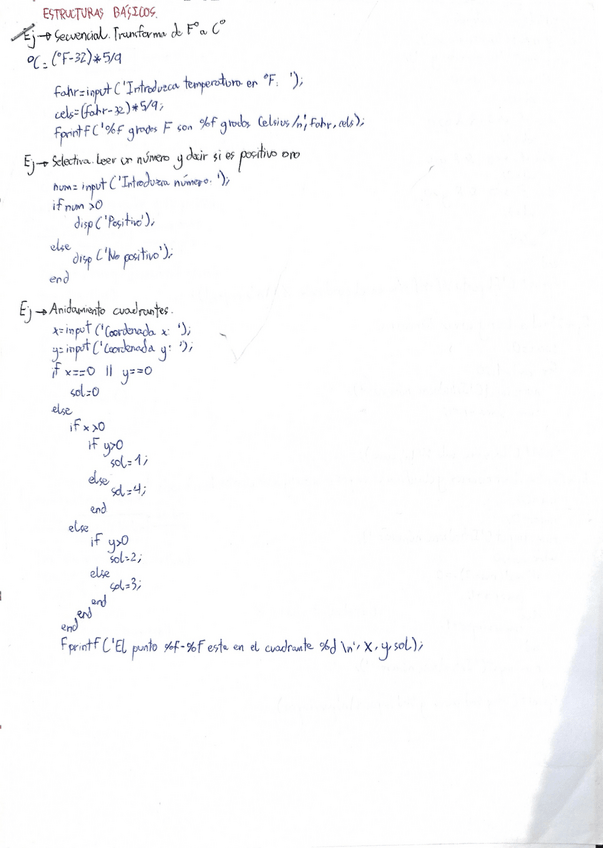 ESTRUCTURAS BÁSICAS.
Ej→ Secuencial. Transforma de Fº a Cº
ºC = (ºF-32)*5/9
fahr=input ('Introduzca temperatura en ºF: ');
cels=(fahr-32)*5/9;
fprintf('%f grados F son %f grados Celsius/n', fahr, cels);
Ej→ Selectiva. Leer un número y decir si es positivo o no
num= input ('Introduzca número: ');
if num >0
disp ('Positivo');
else
disp ('No positivo');
end
Ej→ Anidamiento cuadrantes.
x=input ('Coordenada x: ');
y=input ('Coordenada y: ');
if x==0 || y==0
sol=0
else
if x>0
if y>0
sol=1;
else
sol=4;
end
else
if y>0
sol=2;
else
sol=3;
end
end
end
fprintf('El punto %f-%f este en el cuadrante %d \n', x, y, sol);